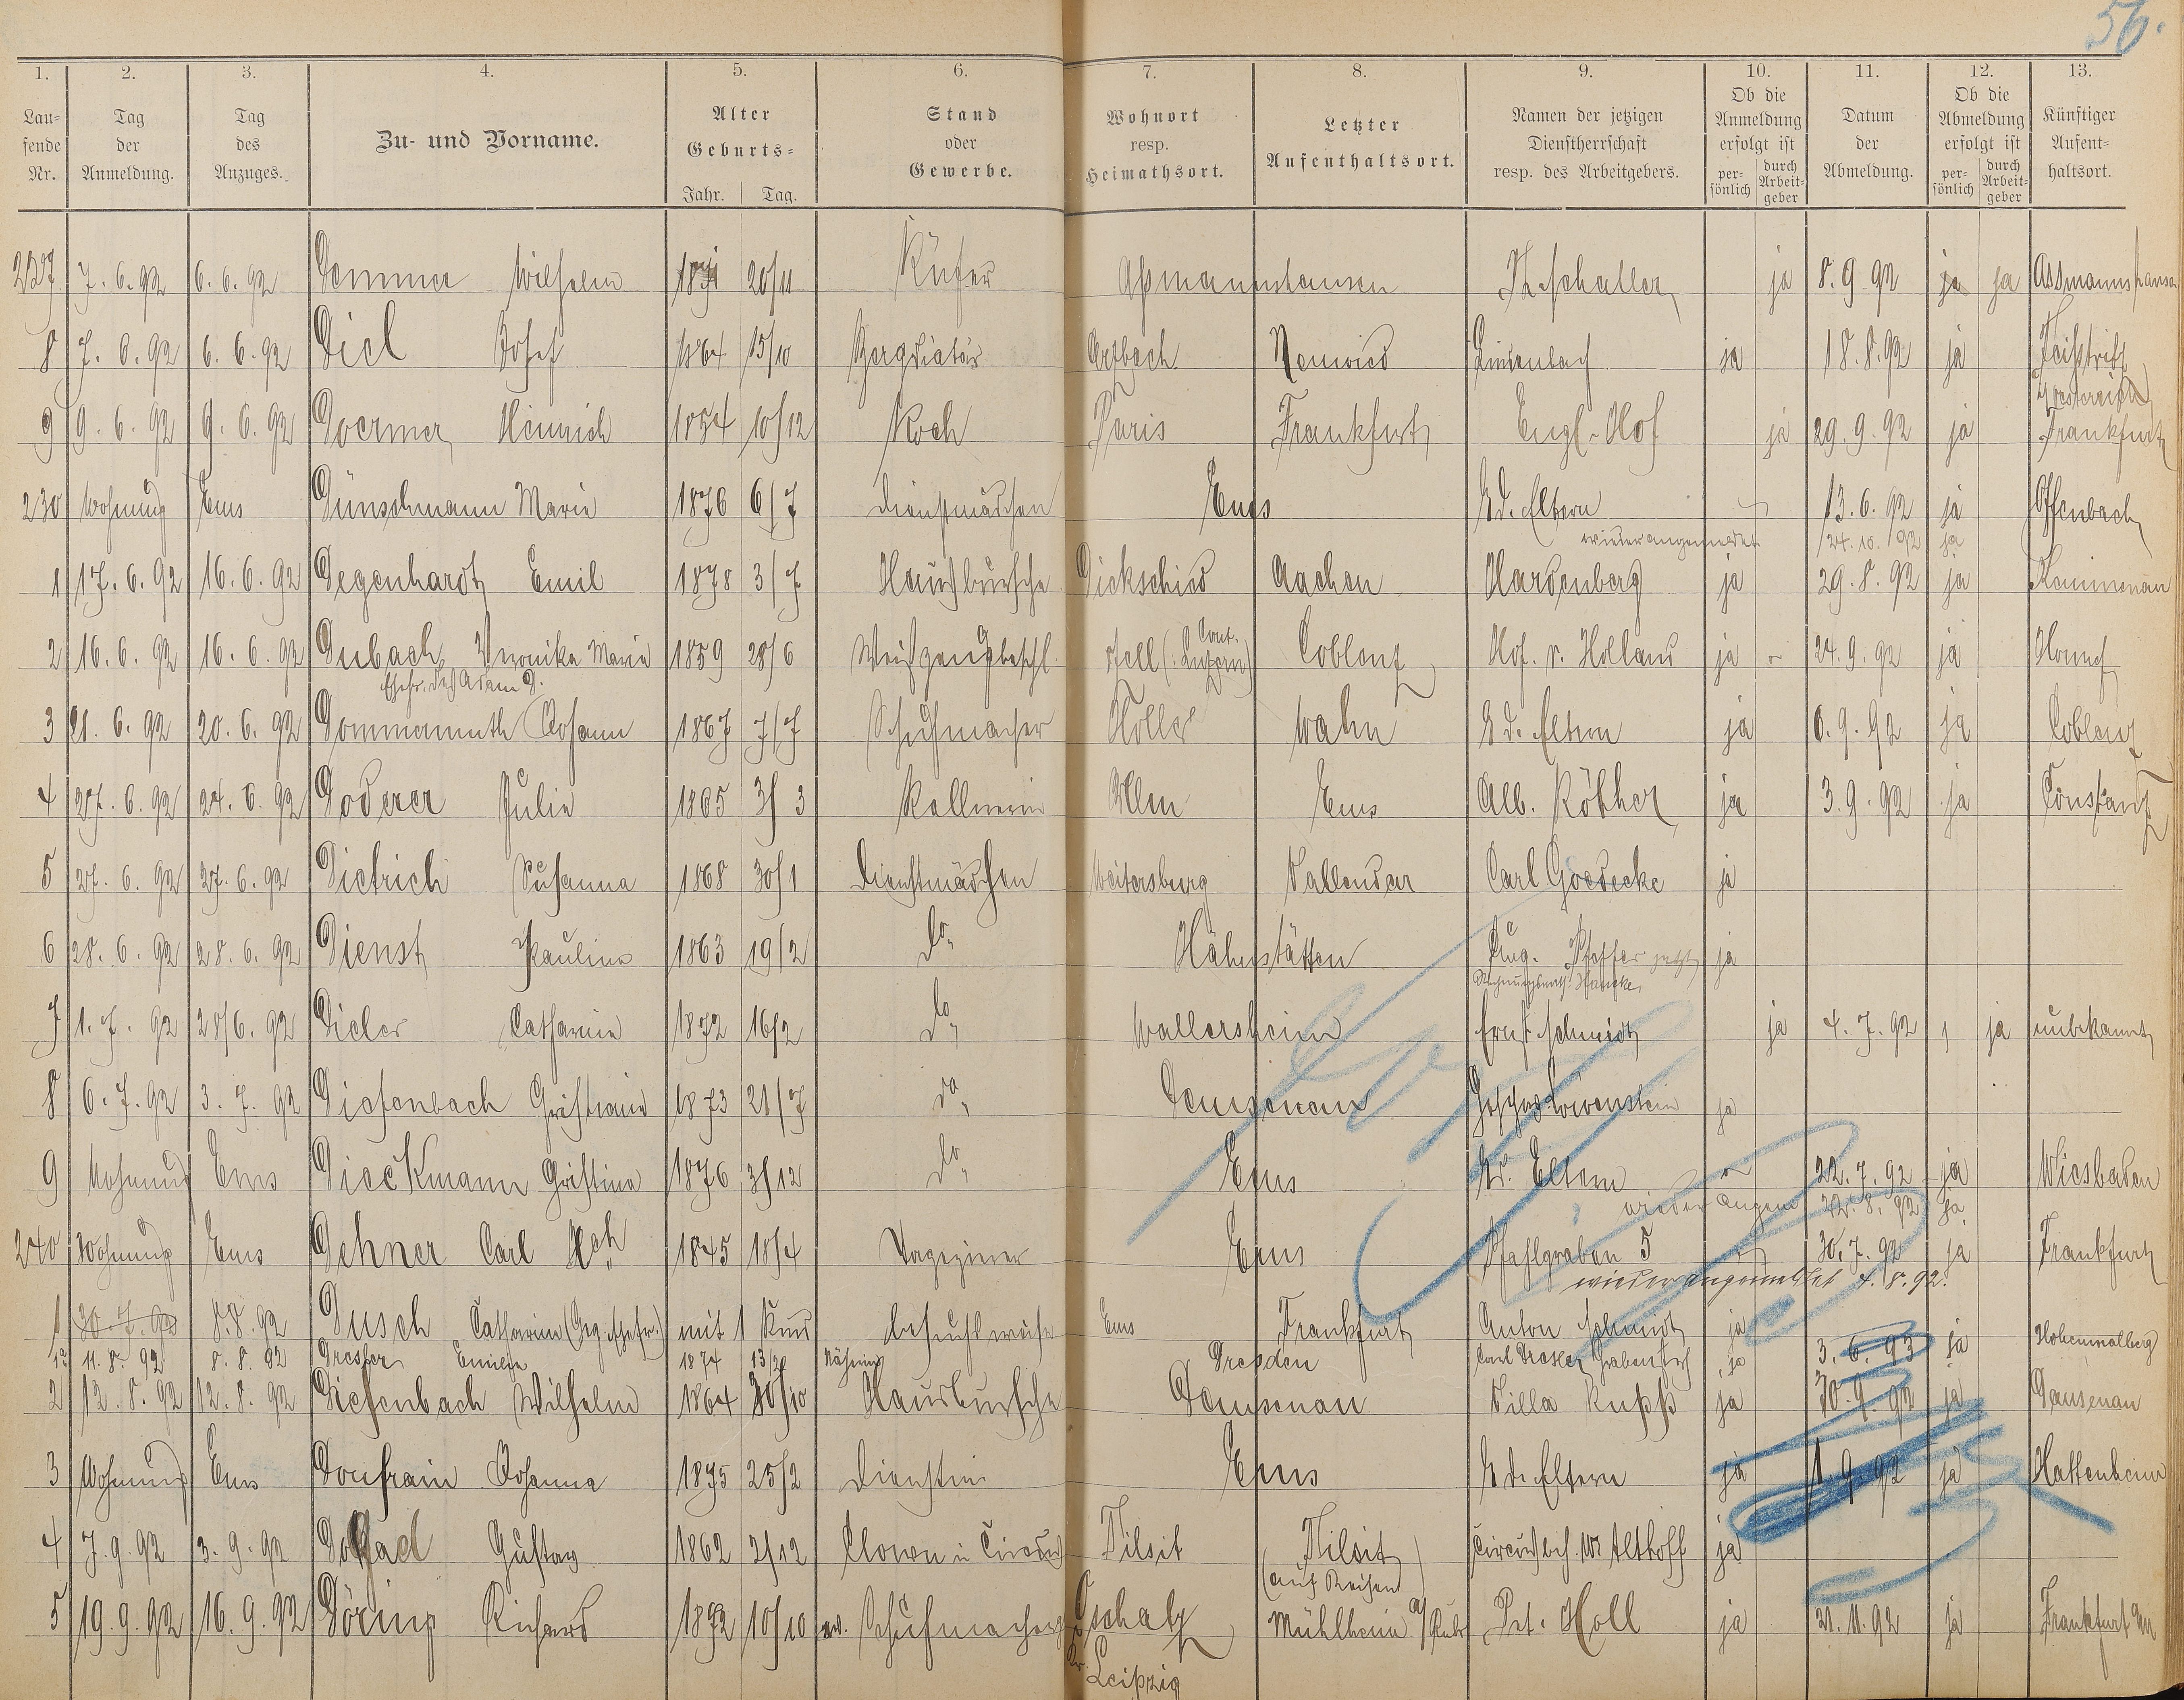 56.
1. 2. 3. 4. 5. 6. 7. 8. 9. 10. 11. 12. 13.
Lau=fende Nr. Tag der Anmeldung. Tag des Anzuges. Zu- und Vorname. Alter Geburts= Jahr. Tag. Stand oder Gewerbe. Wohnort resp. Heimathsort. Letzter Aufenthaltsort. Namen der jetzigen Dienstherrschaft resp. des Arbeitgebers. Ob die Anmeldung erfolgt ist per=sönlich durch Arbeit=geber Datum der Abmeldung. Ob die Abmeldung erfolgt ist per=sönlich durch Arbeit=geber Künftiger Aufent=haltsort.
227 7. 6. 92 6. 6. 92 Demmer Wilhelm 20/11 Küfer Aßmannshausen Th. Schaller ja 8. 9. 92 ja ja Assmannshausen
8 7. 6. 92 6. 6. 92 Diel Josef 1864 15/10 Arzbach Neuwied Lindenbach ja 18. 8. 92 ja Feistritz
Oesterreich
9 9. 6. 92 9. 6. 92 Doermer Heinrich 1854 10/12 Koch Paris Frankfurt Engl. Hof ja 29. 9. 92 ja Frankfurt
230 Wohnung Ems Dünschmann Marie 1876 6/7 Dienstmädchen Ems B d. Eltern 13. 6. 92 ja Offenbach
wieder angemeldet 24. 10. 92 ja
1 17. 6. 92 16. 6. 92 Degenhardt Emil 1878 3/7 Hausbursche Dickschied Aachen Hardenberg ja 29. 8. 92 ja Kemmenau
2 16. 6. 92 16. 6. 92 Dubach Veronika Marie 1859 28/6 Weißzeugbeschl. (Cant. Luzern) Coblenz Hof. v. Holland ja 24. 9. 92 ja Honnef
Ehefr. des Adam D.
3 21. 6. 92 20. 6. 92 Dommermuth Johann 1867 7/7 Schuhmacher Holler Wahn B d. Eltern ja 6. 9. 92 ja Coblenz
4 27. 6. 92 24. 6. 92 Doderer Julie 1865 3/3 Kellnerin Ulm Ems Alb. Röther ja 3. 9. 92 ja Constanz
5 27. 6. 92 27. 6. 92 Dietrich Susanna 1868 30/1 Dienstmädchen Weitersburg Vallendar Carl Goedecke ja
6 28. 6. 92 28. 6. 92 Dienst Pauline 1863 19/2 do. Hahnstätten Aug. Pfeffer jetzt ja
Rechnungsrath Hancke
7 1. 7. 92 28/6. 92 Dieler Catharine 1872 16/2 do. Wallersheim Ernst Schmidt ja 4. 7. 92 ja unbekannt
8 6. 7. 92 3. 7. 92 Diefenbach Christiane 1873 21/7 do. Dausenau Löwenstein ja
9 Wohnung Ems Dieckmann Christina 1876 3/12 do. Ems B d. Eltern 22. 7. 92 ja Wiesbaden
wieder angem 22. 8. 92 ja
240 Wohnung Ems Dehner Carl Hch 1845 18/4 Tapezierer Ems Pfahlgraben 5 30. 7. 92 ja Frankfurt
wieder angemeldet 4. 8. 92.
1 30. 7. 92 8. 8. 92 Dusch Catharine mit 1 Kind besuchsweise Ems Frankfurt Anton Schmidt ja
1a 11. 8. 92 8. 8. 92 Dresler Emilie 1874 13/2 Näherin Dresden Carl Dresler Grabenstr ja 3. 6. 93 ja Hohenmalberg
2 12. 8. 92 12. 8. 92 Diefenbach Wilhelm 1864 30/10 Hausbursche Dausenau Villa Rupp ja 30. 9. 92 ja Dausenau
3 Wohnung Ems Doufrain Johanna 1875 25/2 Ems B d. Eltern ja 1. 9. 92 ja Hattenheim
4 7. 9. 92 3. 9. 92 Gustav 1862 2/12 Clown in Circus Tilsit Tilsit Althoff ja
(auf Reisen)
5 19. 9. 92 16. 9. 92 Döring Richard 1872 10/10 Schuhmacher Oschatz Mühlheim a/Ruhr Pet. Holl ja 21. 11. 92 ja Frankfurt a/M
Kr. Leipzig